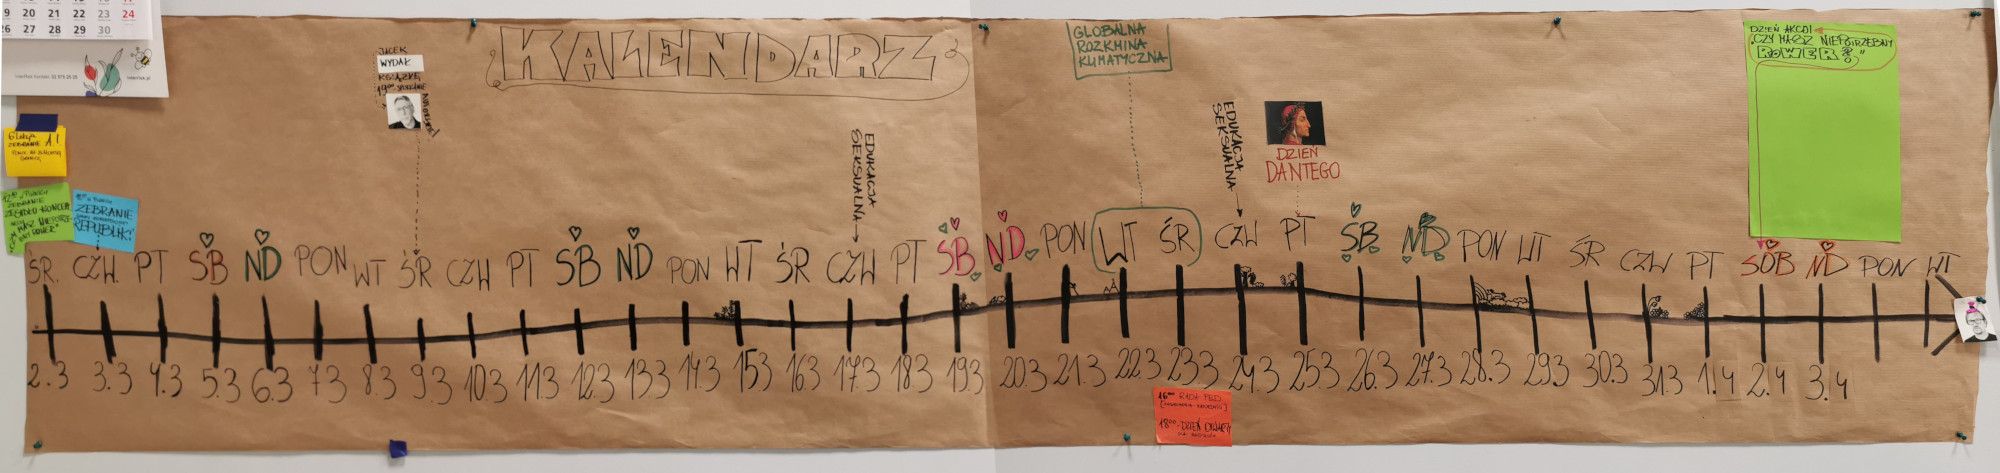 19 20 21 22 23 24
26 27 28 29 30
KALENDARZ
JACEK
WYDAŁ
KSIĄŻKĘ
19:00 SPOTKANIE
GLOBALNA
ROZKMINA
KLIMATYCZNA
EDUKACJA
SEKSUALNA
EDUKACJA
SEKSUALNA
DZIEŃ
DANTEGO
DZIEŃ AKCJI
"CZY MASZ NIEPOTRZEBNY
ROWER?"
ZEBRANIE A.I
ZEBRANIE
ZEBRANIE
REPUBLIKI
ŚR. CZW. PT SB ND PON WT ŚR CZW PT SB ND PON WT ŚR CZW PT SB ND PON WT ŚR CZW PT SB ND PON WT ŚR CZW PT SOB ND PON WT
2.3 3.3 4.3 5.3 6.3 7.3 8.3 9.3 10.3 11.3 12.3 13.3 14.3 15.3 16.3 17.3 18.3 19.3 20.3 21.3 22.3 23.3 24.3 25.3 26.3 27.3 28.3 29.3 30.3 31.3 1.4 2.4 3.4
16:00 RADA PED.
18:00 - DZIEŃ OTWARTY